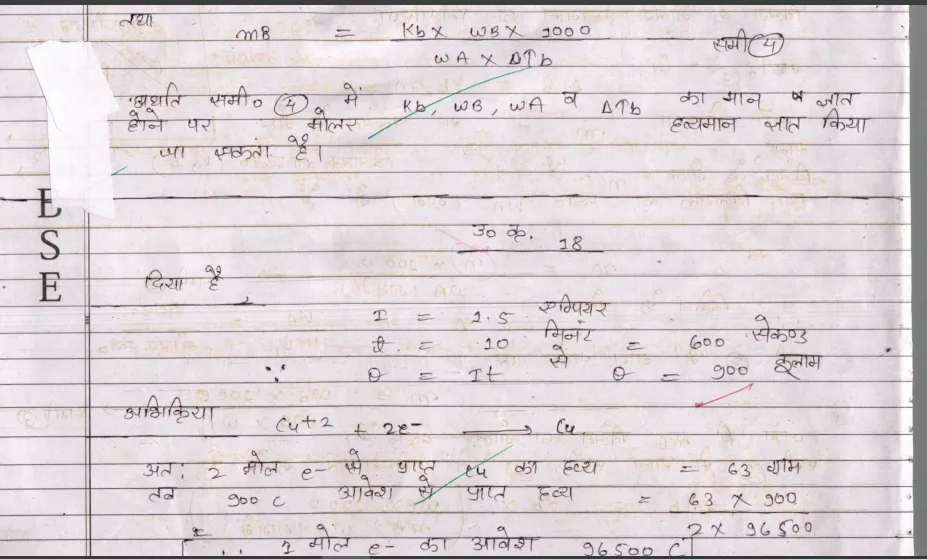 तथा
mB = Kb x WB x 1000
WA x ΔTb समी 4
अर्थात समी० 4 में Kb, WB, WA व ΔTb का मान ज्ञात
होने पर मोलर द्रव्यमान ज्ञात किया
जा सकता है।
L
S
E
उ० क्र. 18
दिया है
I = 1.5 एम्पियर
t = 10 मिनट = 600 सेकण्ड
∵ Q = It से Q = 900 कूलाम
अभिक्रिया
Cu+2 + 2e- ⟶ Cu
अत: 2 मोल e- से प्राप्त Cu का द्रव्य = 63 ग्राम
तब 900 C आवेश से प्राप्त द्रव्य = 63 x 900
2 x 96500
∵ 1 मोल e- का आवेश 96500 C